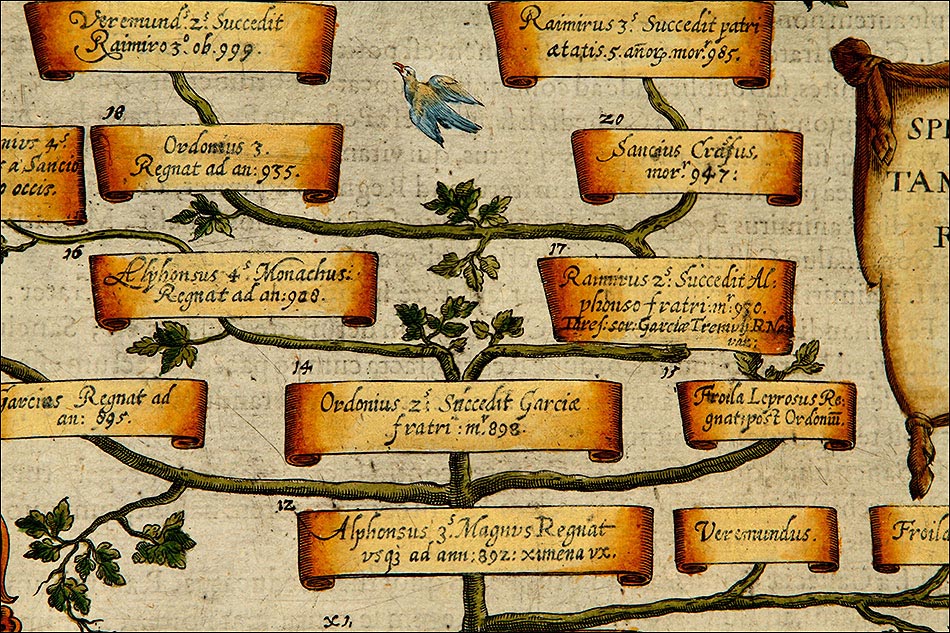 Veremund⁹ 2ˢ. Succedit
Raimiro 3º. ob. 999.
Raimirus 3ˢ. Succedit patri
ætatis. 5. añorꝝ. morʳ. 985.
18
Ordonius 3.
Regnat ad an: 935.
20
Sancius Crasus,
morʳ. 947:
nius 4ˢ.
a Sancio
o occis.
SP
TAN
R
16
Alphonsus 4ˢ. Monachus:
Regnat ad an: 928.
17
Raimirus 2ˢ. Succedit Al-
phonso fratri: mʳ. 950.
Garciæ
Garcias Regnat ad
an: 895.
14
Ordonius 2ˢ. Succedit Garciæ
fratri: mʳ. 898.
15
Froila Leprosus Re-
gnat post Ordoniū.
12
Alphonsus 3ˢ. Magnus Regnat
vsqꝫ ad ann: 892: ximena vx.
Veremundus.
Froila
XI.